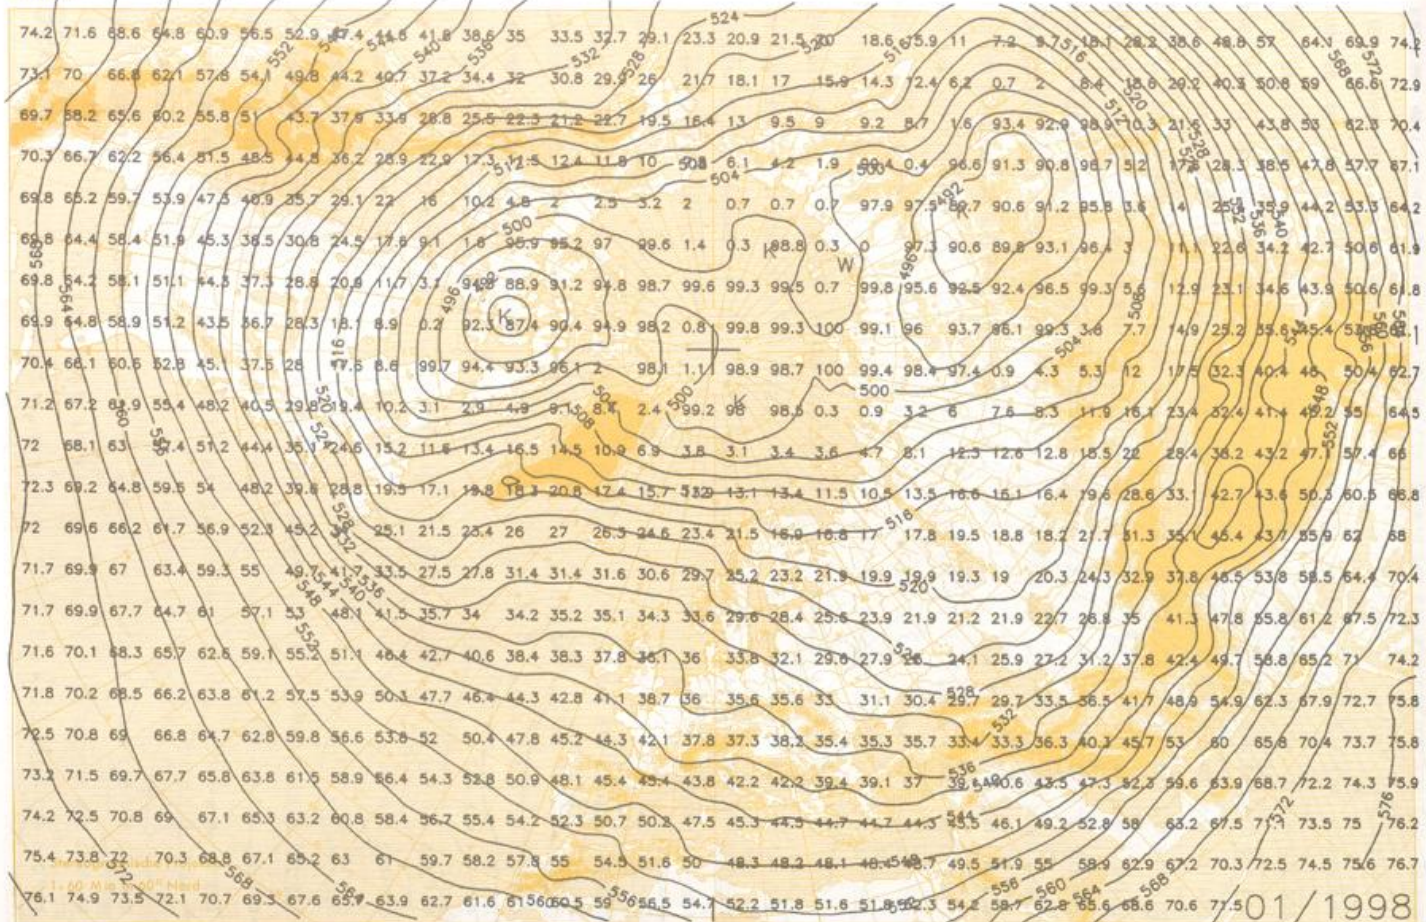 524
74.2 71.6 68.6 64.8 60.9 56.5 52.9 41.8 38.6 35 33.5 32.7 29.1 23.3 20.9 21.5 18.6 15.9 11 7.2 9.7 18.1 28.2 38.6 48.8 57 64.1 69.9
552 540 536 532 528 516 516 568 572
73.1 70 66.8 62.1 57.8 54.1 49.8 44.2 40.7 37.2 34.4 32 30.8 29.9 26 21.7 18.1 17 15.9 14.3 12.4 6.2 0.7 2 8.4 18.6 29.2 40.3 50.8 59 66.6 72.9
520
69.7 68.2 65.6 60.2 55.8 51 43.7 37.9 33.9 28.8 25.5 22.3 21.2 22.7 19.5 16.4 13 9.5 9 9.2 8.7 1.6 93.4 92.9 98.9 10.3 21.6 33 43.8 53 62.3 70.4
512 528
70.3 66.7 62.2 56.4 51.5 48.5 44.8 36.2 28.9 22.9 17.3 12.4 11.8 10 6.1 4.2 1.9 99.4 0.4 96.6 91.3 90.8 96.7 5.2 28.3 38.5 47.8 57.7 67.1
512 504 500
69.8 65.2 59.7 53.9 47.3 40.9 35.7 29.1 22 16 10.2 4.8 2 2.5 3.2 2 0.7 0.7 0.7 97.9 97.5 90.6 91.2 95.8 3.6 14 35.9 44.2 53.3 64.2
500 492 532 536 540
69.8 64.4 58.4 51.9 45.3 38.5 30.8 24.5 17.6 9.1 1.8 95.9 95.2 97 99.6 1.4 0.3 98.8 0.3 0 97.3 90.6 89.8 93.1 96.4 3 11.1 22.6 34.2 42.7 50.6 61.9
K W 496
69.8 64.2 58.1 51.1 44.3 37.3 28.8 20.9 11.7 3.1 94.8 88.9 91.2 94.8 98.7 99.6 99.3 99.5 0.7 99.8 95.6 92.5 92.4 96.5 99.3 5.6 12.9 23.1 34.6 43.9 50.6 61.8
564 496 K 508
69.9 64.8 58.9 51.2 43.5 36.7 28.3 18.1 8.9 0.2 92.3 87.4 90.4 94.9 98.2 0.8 99.8 99.3 100 99.1 96 93.7 96.1 99.3 3.8 7.7 14.9 25.2 35.6 45.4
516 504 560
70.4 66.1 60.6 52.8 45.1 37.5 28 17.6 8.6 99.7 94.4 93.3 96.1 2 98.1 1.1 98.9 98.7 100 99.4 98.4 97.4 0.9 4.3 5.3 12 17.5 32.3 40.4 46 50.4 62.7
504 500 500 K 548
71.2 67.2 61.9 55.4 48.2 40.5 29.8 19.4 10.2 3.1 2.9 4.9 9.1 8.4 2.4 99.2 98 98.6 0.3 0.9 3.2 6 7.6 8.3 11.9 16.1 23.4 32.4 41.4 49.2 55 64.5
560 508 524 552
72 68.1 63 57.4 51.2 44.4 35.1 24.6 15.2 11.6 13.4 16.5 14.5 10.9 6.9 3.8 3.1 3.4 3.6 4.7 8.1 12.3 12.6 12.8 15.5 22 28.4 38.2 43.2 47.1 57.4 66
72.3 69.2 64.8 59.6 54 48.2 39.6 28.8 19.5 17.1 19.8 18.3 20.8 17.4 15.7 13.1 13.4 11.5 10.5 13.5 16.6 16.1 16.4 19.6 28.6 33.1 42.7 43.6 50.3 60.5 66.8
528 516
72 69.6 66.2 61.7 56.9 52.3 45.2 25.1 21.5 23.4 26 27 26.3 24.6 23.4 21.5 16.9 16.8 17 17.8 19.5 18.8 18.2 21.7 31.3 35.1 45.4 43.7 55.9 62 68
532
71.7 69.9 67 63.4 59.3 55 33.5 27.5 27.8 31.4 31.4 31.6 30.6 29.7 25.2 23.2 21.9 19.9 19.9 19.3 19 20.3 24.3 32.9 37.8 46.5 53.8 58.5 64.4 70.4
548 544 540 536 520
71.7 69.9 67.7 64.7 61 57.1 53 48.1 41.5 35.7 34 34.2 35.2 35.1 34.3 33.6 29.6 28.4 25.6 23.9 21.9 21.2 21.9 22.7 26.8 35 41.3 47.8 55.8 61.2 67.5 72.3
552
71.6 70.1 68.3 65.7 62.6 59.1 55.2 51.1 46.4 42.7 40.6 38.4 38.3 37.8 36.1 36 33.8 32.1 29.6 27.9 24.1 25.9 27.2 31.2 37.8 42.4 49.7 58.8 65.2 71 74.2
528
71.8 70.2 68.5 66.2 63.8 61.2 57.5 53.9 50.3 47.7 46.4 44.3 42.8 41.1 38.7 36 35.6 35.6 33 31.1 30.4 29.7 29.7 33.5 36.5 41.7 48.9 54.9 62.3 67.9 72.7 75.8
532
72.5 70.8 69 66.8 64.7 62.8 59.8 56.6 53.8 52 50.4 47.8 45.2 44.3 42.1 37.8 37.3 38.2 35.4 35.3 35.7 33.4 33.3 36.3 40.3 45.7 53 60 65.8 70.4 73.7 75.8
536
73.2 71.5 69.7 67.7 65.8 63.8 61.5 58.9 56.4 54.3 52.8 50.9 48.1 45.4 45.4 43.8 42.2 42.2 39.4 39.1 37 40.6 43.5 47.3 52.3 59.6 63.9 68.7 72.2 74.3 75.9
544 572 576
74.2 72.5 70.8 69 67.1 65.3 63.2 60.8 58.4 56.7 55.4 54.2 52.3 50.7 50.2 47.5 45.3 44.5 44.7 44.7 44.3 45.5 46.1 49.2 52.8 58 63.2 67.5 71.1 73.5 75 76.2
75.4 73.8 72 70.3 68.8 67.1 65.2 63 61 59.7 58.2 57.8 55 54.5 51.6 50 48.3 48.2 48.1 48.4 48.7 49.5 51.9 55 58.9 62.9 67.2 70.3 72.5 74.5 75.6 76.7
572 568 564 560 556 556 560 564 568
76.1 74.9 73.5 72.1 70.7 69.3 67.6 65.7 63.9 62.7 61.6 61 60.5 59 56.5 54.7 52.2 51.8 51.6 51.8 52.3 54.2 58.7 62.8 65.6 68.6 70.6 71.5
01/1998